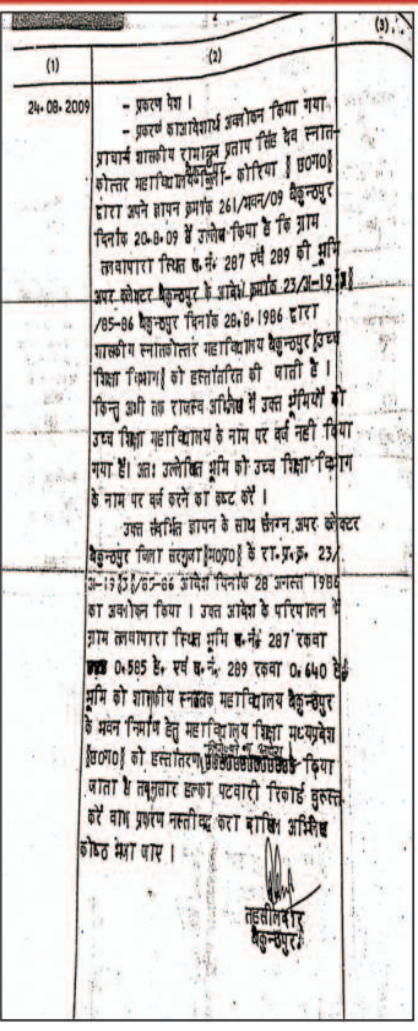 2
(1) (2) (3)
24.08.2009 - प्रकरण पेश ।
- प्रकरण का आदेशार्थ अवलोकन किया गया
प्राचार्य शासकीय रामानुज प्रताप सिंह देव स्नात-
कोत्तर महाविद्यालय कोरिया [छ0ग0]
द्वारा अपने ज्ञापन क्रमांक 261/भवन/09 बैकुन्ठपुर
दिनांक 20.8.09 में उल्लेख किया है कि ग्राम
तलवापारा स्थित ख.नं. 287 एवं 289 की भूमि
अपर कलेक्टर बैकुन्ठपुर के आदेश क्रमांक 23/अ-19
/85-86 बैकुन्ठपुर दिनांक 28.8.1986 द्वारा
शासकीय स्नातकोत्तर महाविद्यालय बैकुन्ठपुर [उच्च
शिक्षा विभाग] को हस्तांतरित की जाती है ।
किन्तु अभी तक राजस्व अभिलेख में उक्त भूमियों को
उच्च शिक्षा महाविद्यालय के नाम पर दर्ज नही किया
गया है। अतः उल्लेखित भूमि को उच्च शिक्षा विभाग
के नाम पर दर्ज करने का कष्ट करें ।
उक्त संदर्भित ज्ञापन के साथ संलग्न अपर कलेक्टर
बैकुन्ठपुर जिला सरगुजा [म0प्र0] के रा.प्र.क्र. 23/
अ-19[3]/85-86 आदेश दिनांक 28 अगस्त 1986
का अवलोकन किया । उक्त आदेश के परिपालन में
ग्राम तलवापारा स्थित भूमि ख.नं. 287 रकवा
0.585 हे. एवं ख.नं. 289 रकवा 0.640 हे.
भूमि को शासकीय स्नातक महाविद्यालय बैकुन्ठपुर
के भवन निर्माण हेतु महाविद्यालय शिक्षा मध्यप्रदेश
[छ0ग0] को हस्तांतरण किया
जाता है तदनुसार हल्का पटवारी रिकार्ड दुरूस्त
करें बाद प्रकरण नस्तीबद्ध करा दाखिल अभिलेख
कोष्ठ भेजा जाए ।
तहसीलदार
बैकुन्ठपुर